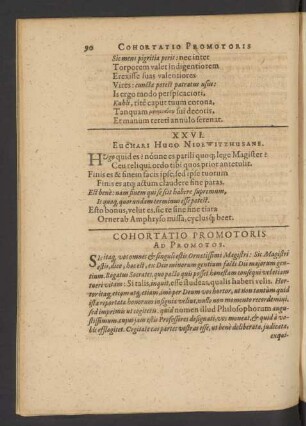 90 COHORTATIO PROMOTORIS
Sic mens pigritia perit: nec inter
Torporem valet indigentiorem
Erexisse suas valentiores
Vires: cuncta potest patratus usus:
Is ergo modo perspicaciori,
Kubis, rite caput tuum corona,
Tanquam sui decoris,
Et manum tereti annulo serenat.
XXVI.
EUCHARI HUGO NIORWITZHUSANE.
Hugo quid es? nónne es parili quoq; lege Magister?
Ceu reliqui, ordo tibi quos prior antetulit.
Finis es & finem facis ipse, sed ipse tuorum
Finis es atq; actum claudere fine paras.
Est bene: nam suum quisq; est habere supremum,
Is quoq; quorundam terminus esse potest.
Esto bonus, velut es, sic te sine fine tiara
Ornerab Amphryso missa, cyclusq; beet.
COHORTATIO PROMOTORIS
AD PROMOTOS.
Sic itaq; vos omnes & singuli estis Ornatissimi Magistri: Sic Magistri
estis, dico, hoc est, ex Deo minorum gentium facti Dii majorum
gentium. Rogatus Socrates, quo pacto quis posset honestam consequi vel etiam
tueri vitam: Si talis, inquit, esse studeas, qualis haberi velis. Hor-
tor itaq; etiam atq; etiam, imò per Deum vos hortor, ut non tantùm quid
ista reportata honorum insignia velint, unde nos monent recordemini,
sed imprimis ut cogitetis, quid numen illud Philosophorum au-
gustissimum, cujus jam estis Professores designati, vos moneat, & quid à vo-
bis efflagitet. Cogitate eas partes vestras esse, ut benè deliberata, judicata,
exqui-